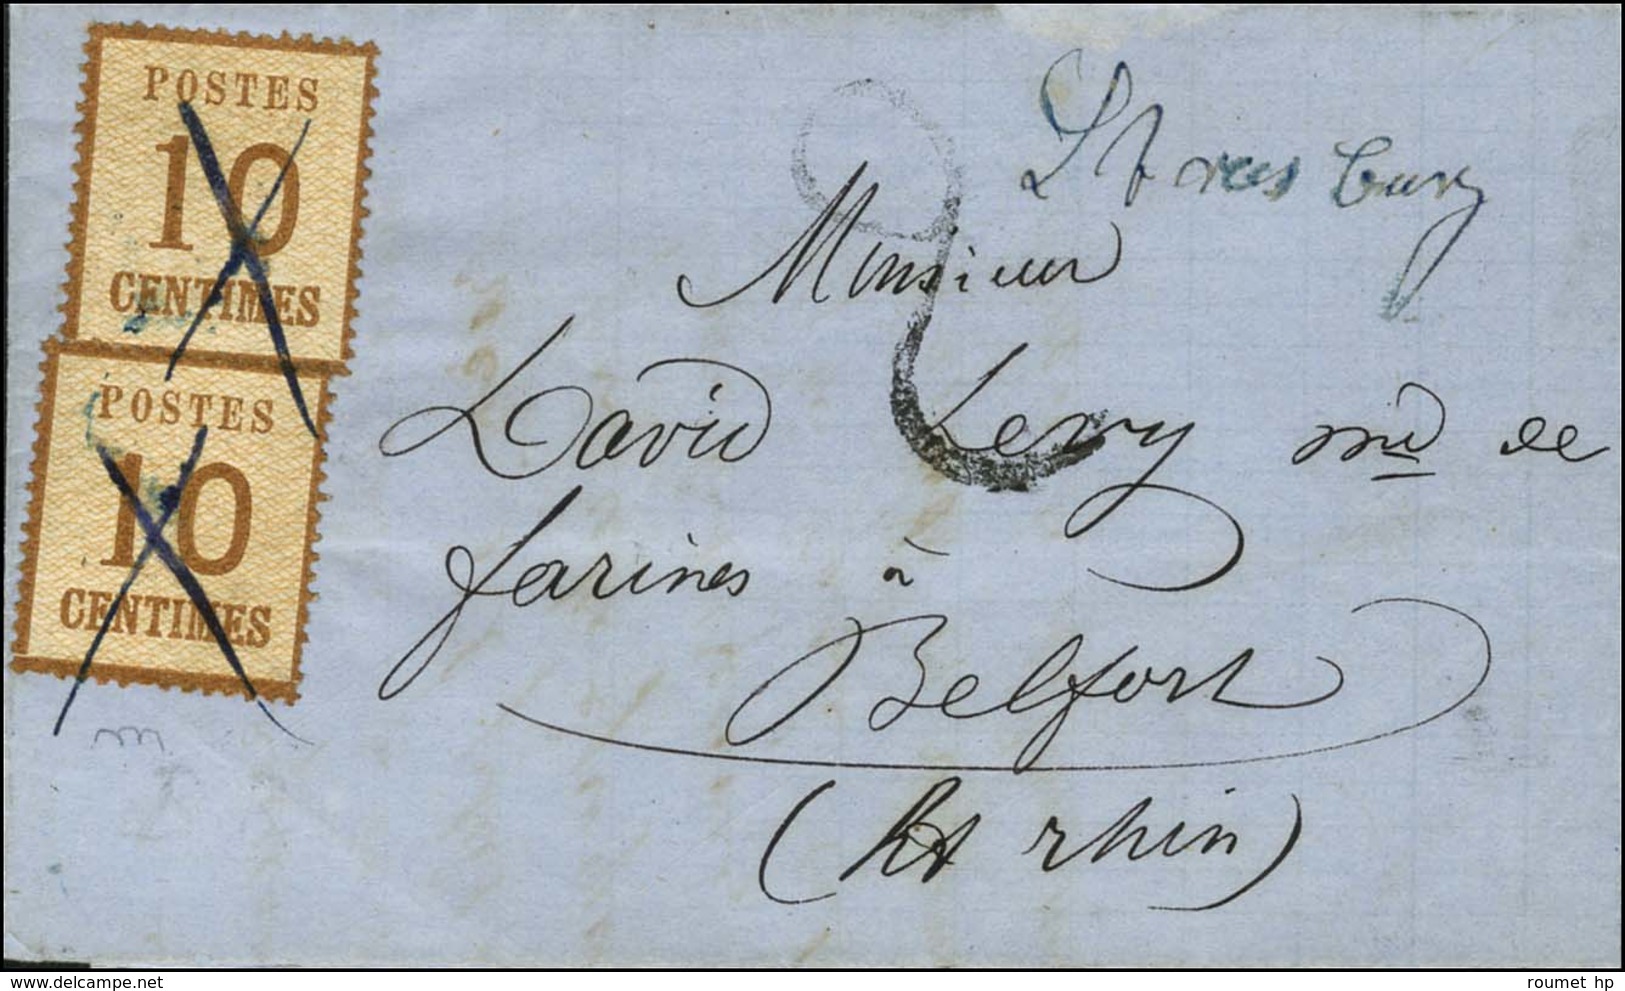 POSTES
10
CENTIMES
POSTES
10
CENTIMES
Strasburg
2
Monsieur
David Levy md de
farines à
Belfort
(Ht rhin)
www.delcampe.net
roumet hp